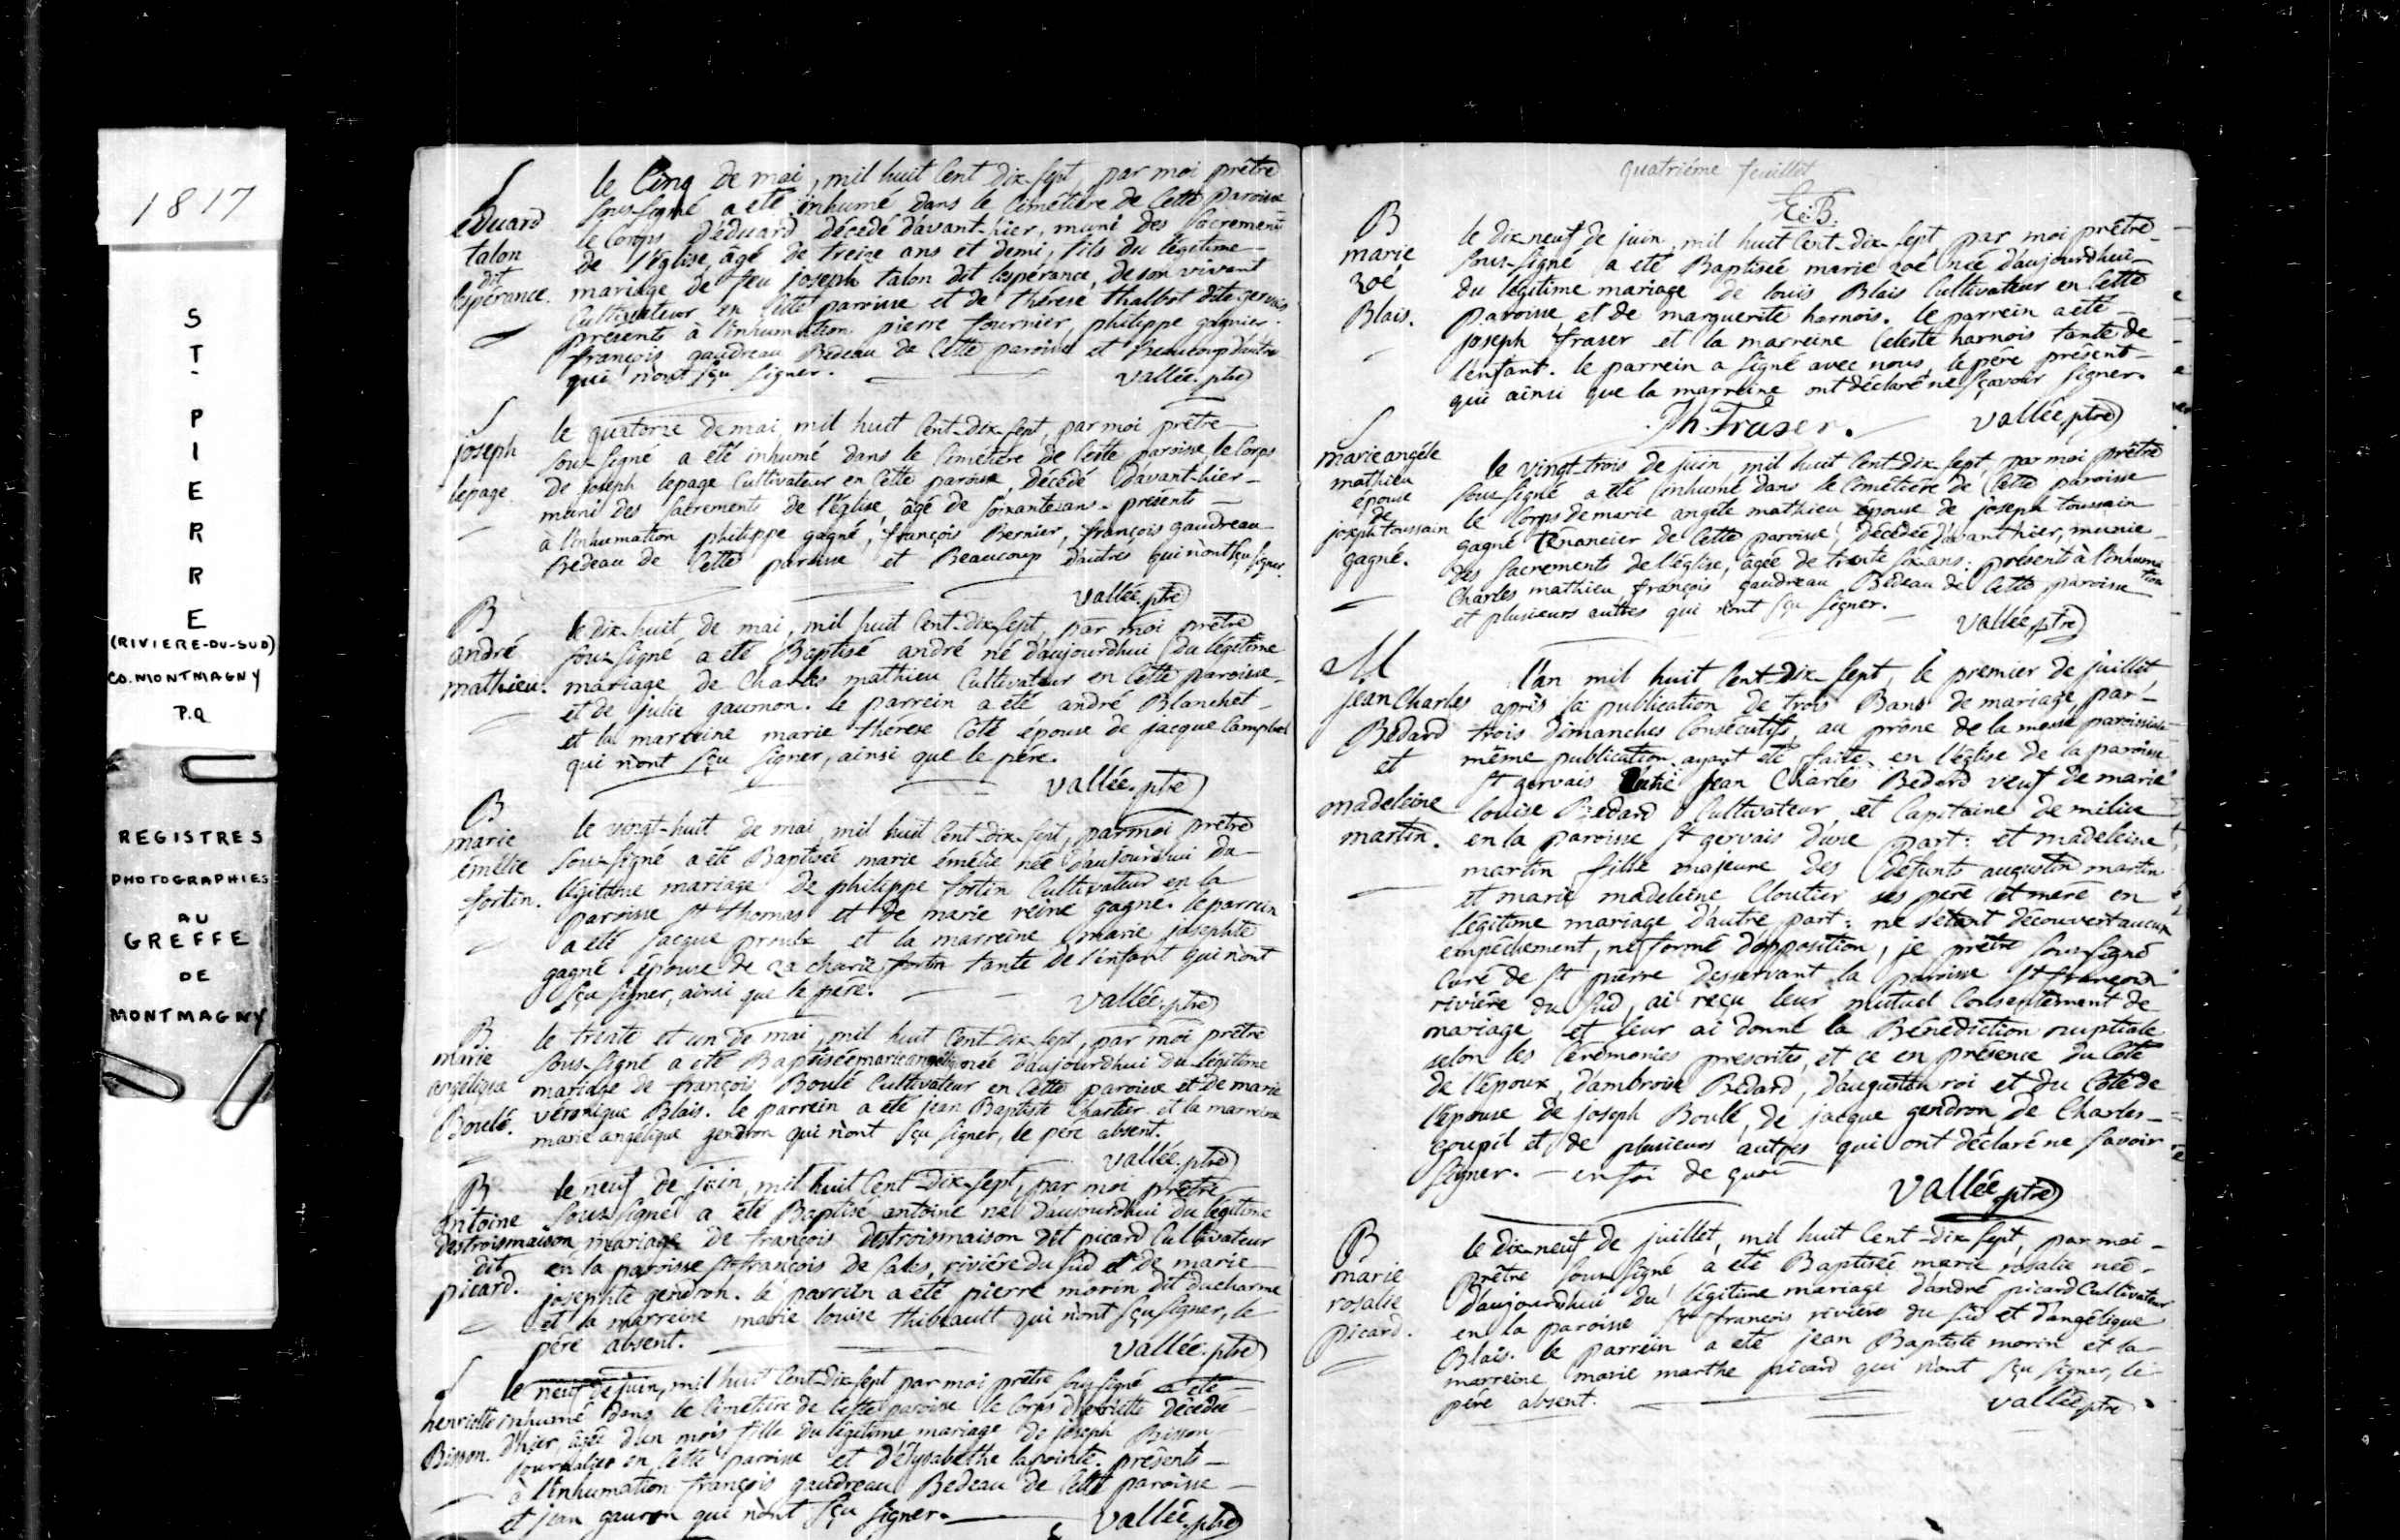 1817
ST
PIERRE
(RIVIERE-DU-SUD)
CO. MONTMAGNY
P.Q
REGISTRES
PHOTOGRAPHIES
AU
GREFFE
DE
MONTMAGNY
S
éduard
talon
dit
lespérance.
le Cinq de mai, mil huit Cent dix-sept par moi prêtre
sous-signé a eté inhumé dans le Cimétiere de Cette paroisse
le Corps d'éduard décédé d'avant-hier, muni des Sacrements
de l'église, âgé de treize ans et demi, fils du légitime
mariage de feu joseph talon dit lespérance, de son vivant
Cultivateur en Cette paroisse et de thérese thalbot dite gervais
présents à l'inhumation pierre fournier, philippe gagnier
françois gaudreau Bedeau de Cette paroisse et beaucoup d'autres
qui n'ont sçu signer.
vallée. ptre
S
joseph
lepage
le quatorze de mai mil huit Cent-dix-sept, par moi prêtre
sous-signé a eté inhumé dans le Cimétiere de Cette paroisse, le Corps
de joseph lepage Cultivateur en Cette paroisse, décédé d'avant-hier
muni des sacrements de l'église, âgé de soixante ans. présents
à l'inhumation philippe gagné, françois Bernier, françois gaudreau
Bedeau de Cette paroisse et Beaucoup d'autres qui n'ont sçu signer.
vallée. ptre
B
andré
mathieu.
le dix-huit de mai, mil huit Cent-dix-sept, par moi prêtre
sous-signé a eté Baptisé andré né d'aujourdhui du légitime
mariage de Charles mathieu Cultivateur en Cette paroisse
et de julie gaumon. le parrein a eté andré Blanchet
et la marreine marie thérese Coté épouse de jacque Campbel
qui n'ont sçu signer, ainsi que le pére.
vallée. ptre
B
marie
émélie
fortin.
le vingt-huit de mai, mil huit Cent-dix-sept, par moi prêtre
sous-signé a eté Baptisée marie émélie née d'aujourdhui du
légitime mariage de philippe fortin Cultivateur en la
paroisse st thomas et de marie reine gagné. le parrein
a eté jacque proulx et la marreine marie josephte
gagné épouse de zacharie fortin tante de l'enfant qui n'ont
sçu signer, ainsi que le pére.
vallée. ptre
B.
marie
angélique
Boulé.
le trente et un de mai, mil huit Cent-dix-sept, par moi prêtre
sous-signé a eté Baptisée marie angélique née d'aujourdhui du légitime
mariage de françois Boulé Cultivateur en Cette paroisse et de marie
véronique Blais. le parrein a eté jean Baptiste Chartier et la marreine
marie angélique gendron qui n'ont sçu signer, le pére absent.
vallée. ptre
B
antoine
destroismaison
dit
picard.
le neuf de juin, mil huit Cent-dix-sept, par moi prêtre
sous-signé a eté Baptisé antoine né d'aujourdhui du légitime
mariage de françois destroismaison dit picard Cultivateur
en la paroisse st françois de sales, riviére du sud et de marie
josephte gendron. le parrein a eté pierre morin dit ducharme
et la marreine marie louise thibeault qui n'ont sçu signer, le
pére absent.
vallée. ptre
S
henriette
Bisson.
le neuf de juin, mil huit Cent-dix-sept par moi prêtre sous-signé a eté
inhumé dans le Cimétiere de Cette paroisse le Corps d'henriette décédée
d'hier, âgée d'un mois fille du légitime mariage de joseph Bisson
journalier en Cette paroisse et d'élysabethe lapointe. présents
à l'inhumation françois gaudreau Bedeau de Cette paroisse
et jean gauron qui n'ont sçu signer.
vallée. ptre
quatriéme feuillet
B
marie
zoé
Blais.
le dix-neuf de juin, mil huit Cent-dix-sept, par moi prêtre
sous-signé a eté Baptisée marie zoé née d'aujourdhui
du légitime mariage de louis Blais Cultivateur en Cette
paroisse et de marguerite harnois. le parrein a eté
joseph fraser et la marreine Celeste harnois tante de
l'enfant. le parrein a signé avec nous, le pére présent
qui ainsi que la marreine ont déclaré ne sçavoir signer.
Jh Fraser. vallée ptre
S
marie angéle
mathieu
épouse
de
joseph toussain
gagné.
le vingt-trois de juin, mil huit Cent-dix-sept par moi prêtre
sous-signé a eté inhumé dans le Cimétiére de Cette paroisse
le Corps de marie angéle mathieu épouse de joseph toussain
gagné ténancier de Cette paroisse, décédée d'avant hier, munie
des sacrements de l'église, âgée de trente six ans: présents à l'inhumation
Charles mathieu, françois gaudreau Bedeau de Cette paroisse
et plusieurs autres qui n'ont sçu signer.
vallée ptre
M
jean Charles
Bedard
et
madeleine
martin.
l'an mil huit Cent-dix-sept, le premier de juillet,
après la publication de trois Bans de mariage par
trois dimanches Consécutifs, au prône de la messe paroissiale
même publication ayant eté faite en l'église de la paroisse
st gervais Entre jean Charles Bedard veuf de marie
louise Bedard Cultivateur et Capitaine de milice
en la paroisse st gervais d'une part: et madeleine
martin fille majeure des défunts augustin martin
et marie madeleine Cloutier ses pére et mere en
légitime mariage d'autre part: ne s'étant découvert aucun
empêchement, ni formé d'opposition, je prêtre sous-signé
Curé de st pierre desservant la paroisse st françois
riviére du sud, ai reçu leur mutuel Consentement de
mariage et leur ai donné la Bénédiction nuptiale
selon les Cérémonies prescrites, et ce en présence du Côté
de l'époux, d'ambroise Bedard, d'augustin roi et du Côté de
l'épouse de joseph Boulé, de jacque gendron, de Charles
goupil et de plusieurs autres qui ont déclaré ne savoir
signer. en foi de quoi
vallée ptre
B
marie
rosalie
picard.
le dix-neuf de juillet, mil huit Cent-dix-sept, par moi
prêtre sous-signé a eté Baptisée marie rosalie née
d'aujourdhui du légitime mariage d'andré picard Cultivateur
en la paroisse st françois riviére du sud et d'angélique
Blais. le parrein a eté jean Baptiste morin et la
marreine marie marthe picard qui n'ont sçu signer, le
pére absent.
vallée ptre